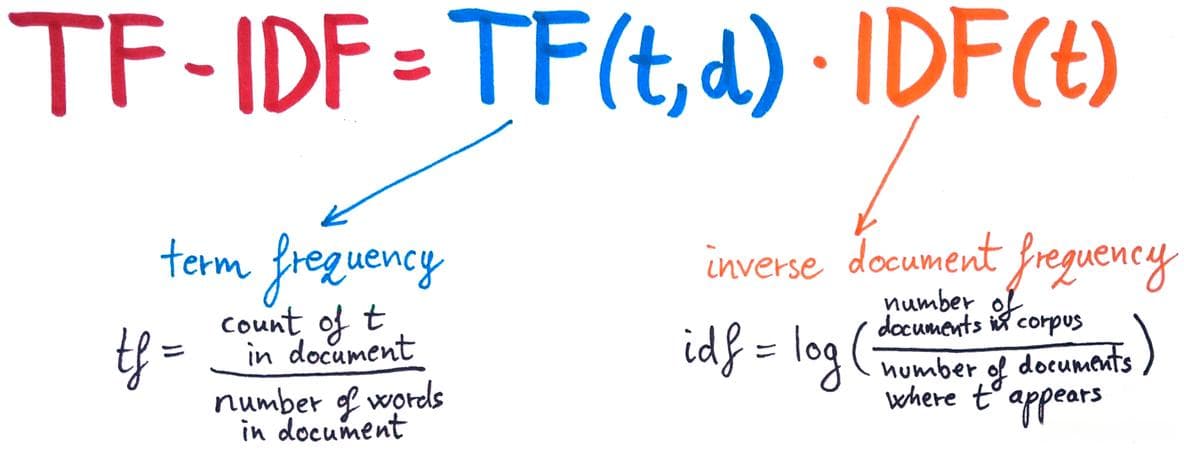 TF-IDF = TF(t,d) · IDF(t)
term frequency
tf = count of t
in document
number of words
in document
inverse document frequency
idf = log ( number of
documents in corpus
number of documents
where t appears )